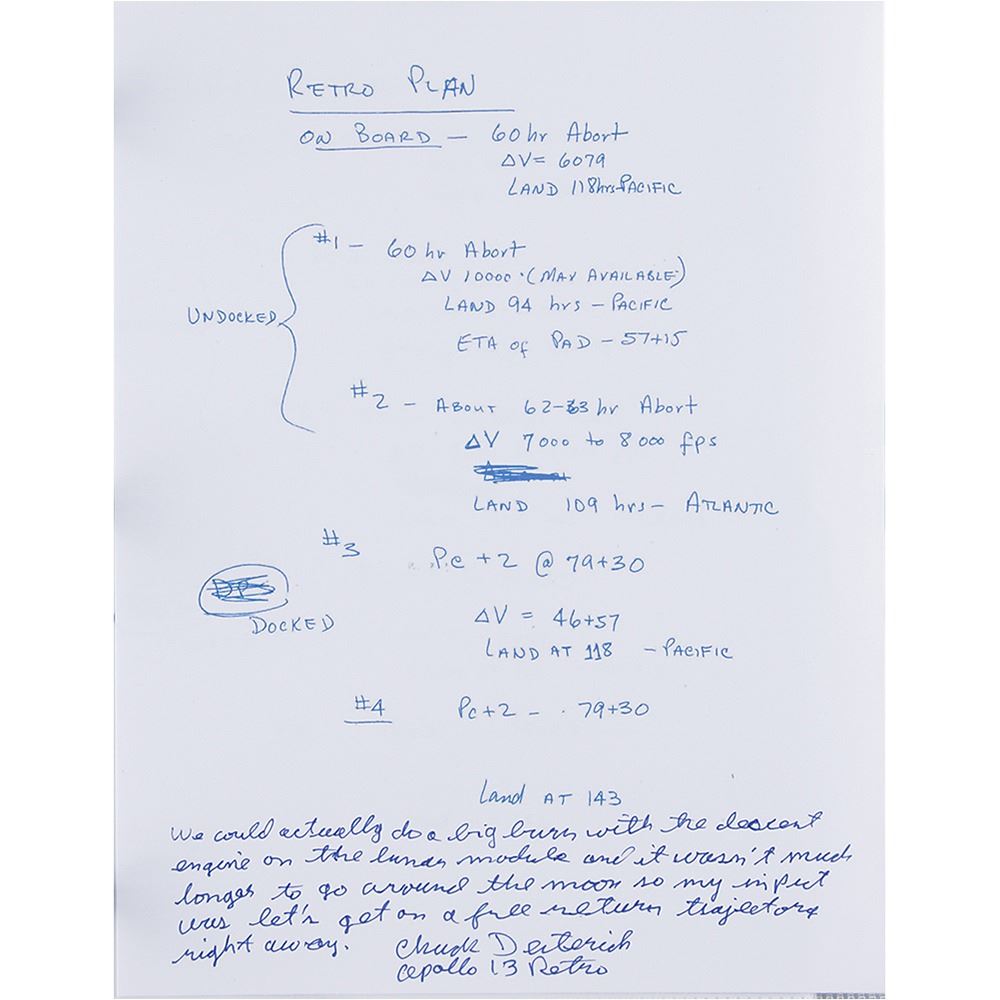 RETRO PLAN
ON BOARD — 60 hr Abort
ΔV= 6079
LAND 118hrs-PACIFIC
#1 — 60 hr Abort
ΔV 10000 (MAX AVAILABLE)
LAND 94 hrs - PACIFIC
UNDOCKED
ETA of PAD - 57+15
#2 - ABOUT 62-63 hr Abort
ΔV 7000 to 8000 fps
LAND 109 hrs - ATLANTIC
#3 Pc +2 @ 79+30
DPS
DOCKED
ΔV = 46+57
LAND AT 118 - PACIFIC
#4 Pc+2 - 79+30
Land AT 143
We could actually do a big burn with the descent
engine on the lunar module and it wasn't much
longer to go around the moon so my input
was let's get on a free return trajectory
right away. Chuck Deiterich
Apollo 13 Retro